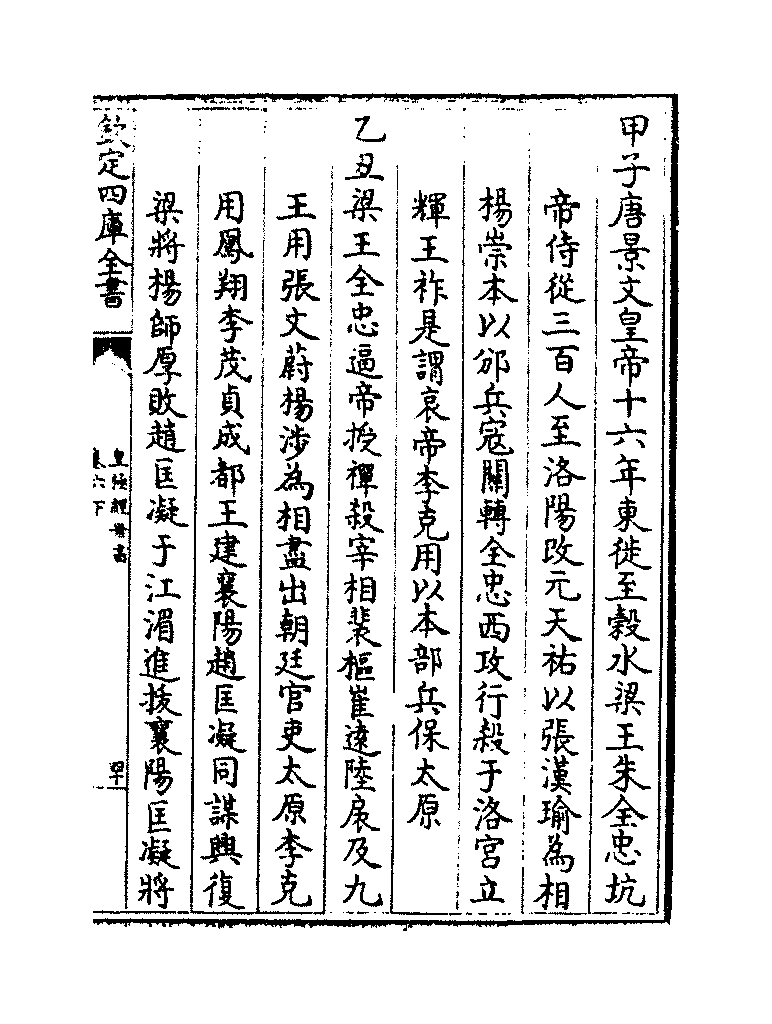 甲子唐景文皇帝十六年東徙至穀水梁王朱全忠坑
帝侍從三百人至洛陽改元天祐以張漢瑜為相
楊崇本以邠兵寇關轉全忠西攻行殺于洛宮立
輝王祚是謂哀帝李克用以本部兵保太原
乙丑梁王全忠逼帝授禪殺宰相裴樞崔遠陸扆及九
王用張文蔚楊涉為相盡出朝廷官吏太原李克
用鳳翔李茂貞成都王建襄陽趙匡凝同謀興復
梁將楊師厚敗趙匡凝于江湄進拔襄陽匡凝將
欽定四庫全書
皇極經世書
卷六下
罕